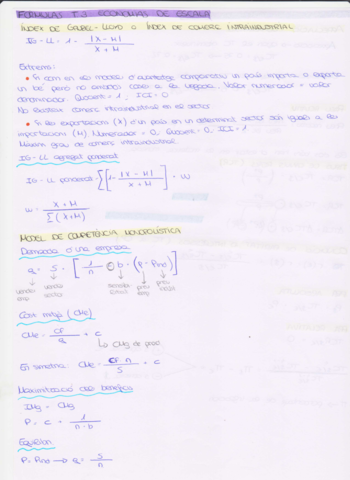 FÓRMULAS T.3 ECONOMIAS DE ESCALA
ÍNDEX DE GRUBEL-LLOYD O ÍNDEX DE COMERÇ INTRAINDUSTRIAL
IG-LL = 1 - |X - M| / X + M
Extrems:
• Si com en els models d'avantatge comparatiu un país importa o exporta
un bé però no ambdós coses a la vegada. Valor numerador = valor
denominador. Quocient = 1, ICI = 0
No existeix comerç intraindustrial en el sector
• Si les exportacions (X) d'un país en un determinat sector són iguals a les
importacions (M) Numerador = 0, Quocient = 0, ICI = 1
Màxim grau de comerç intraindustrial
IG-LL agregat ponderat
IG-LL ponderat = Σ [1 - |X - M| / X + M] · W
W = X + M / Σ(X+M)
MODEL DE COMPETÈNCIA MONOPOLÍSTICA
Demanda d'una empresa
Q = S · [1/n - b · (P - Pmo)]
vendes emp. vendes sector preu emp.
Cost mitjà (CMe)
CMe = CF / Q + c
CMg de prod.
En simetria: CMe = CF · n / S + c
Maximització dels beneficis
IMg = CMg
P - c = 1 / n · b
Equilibri
P = Pmo → Q = S / n